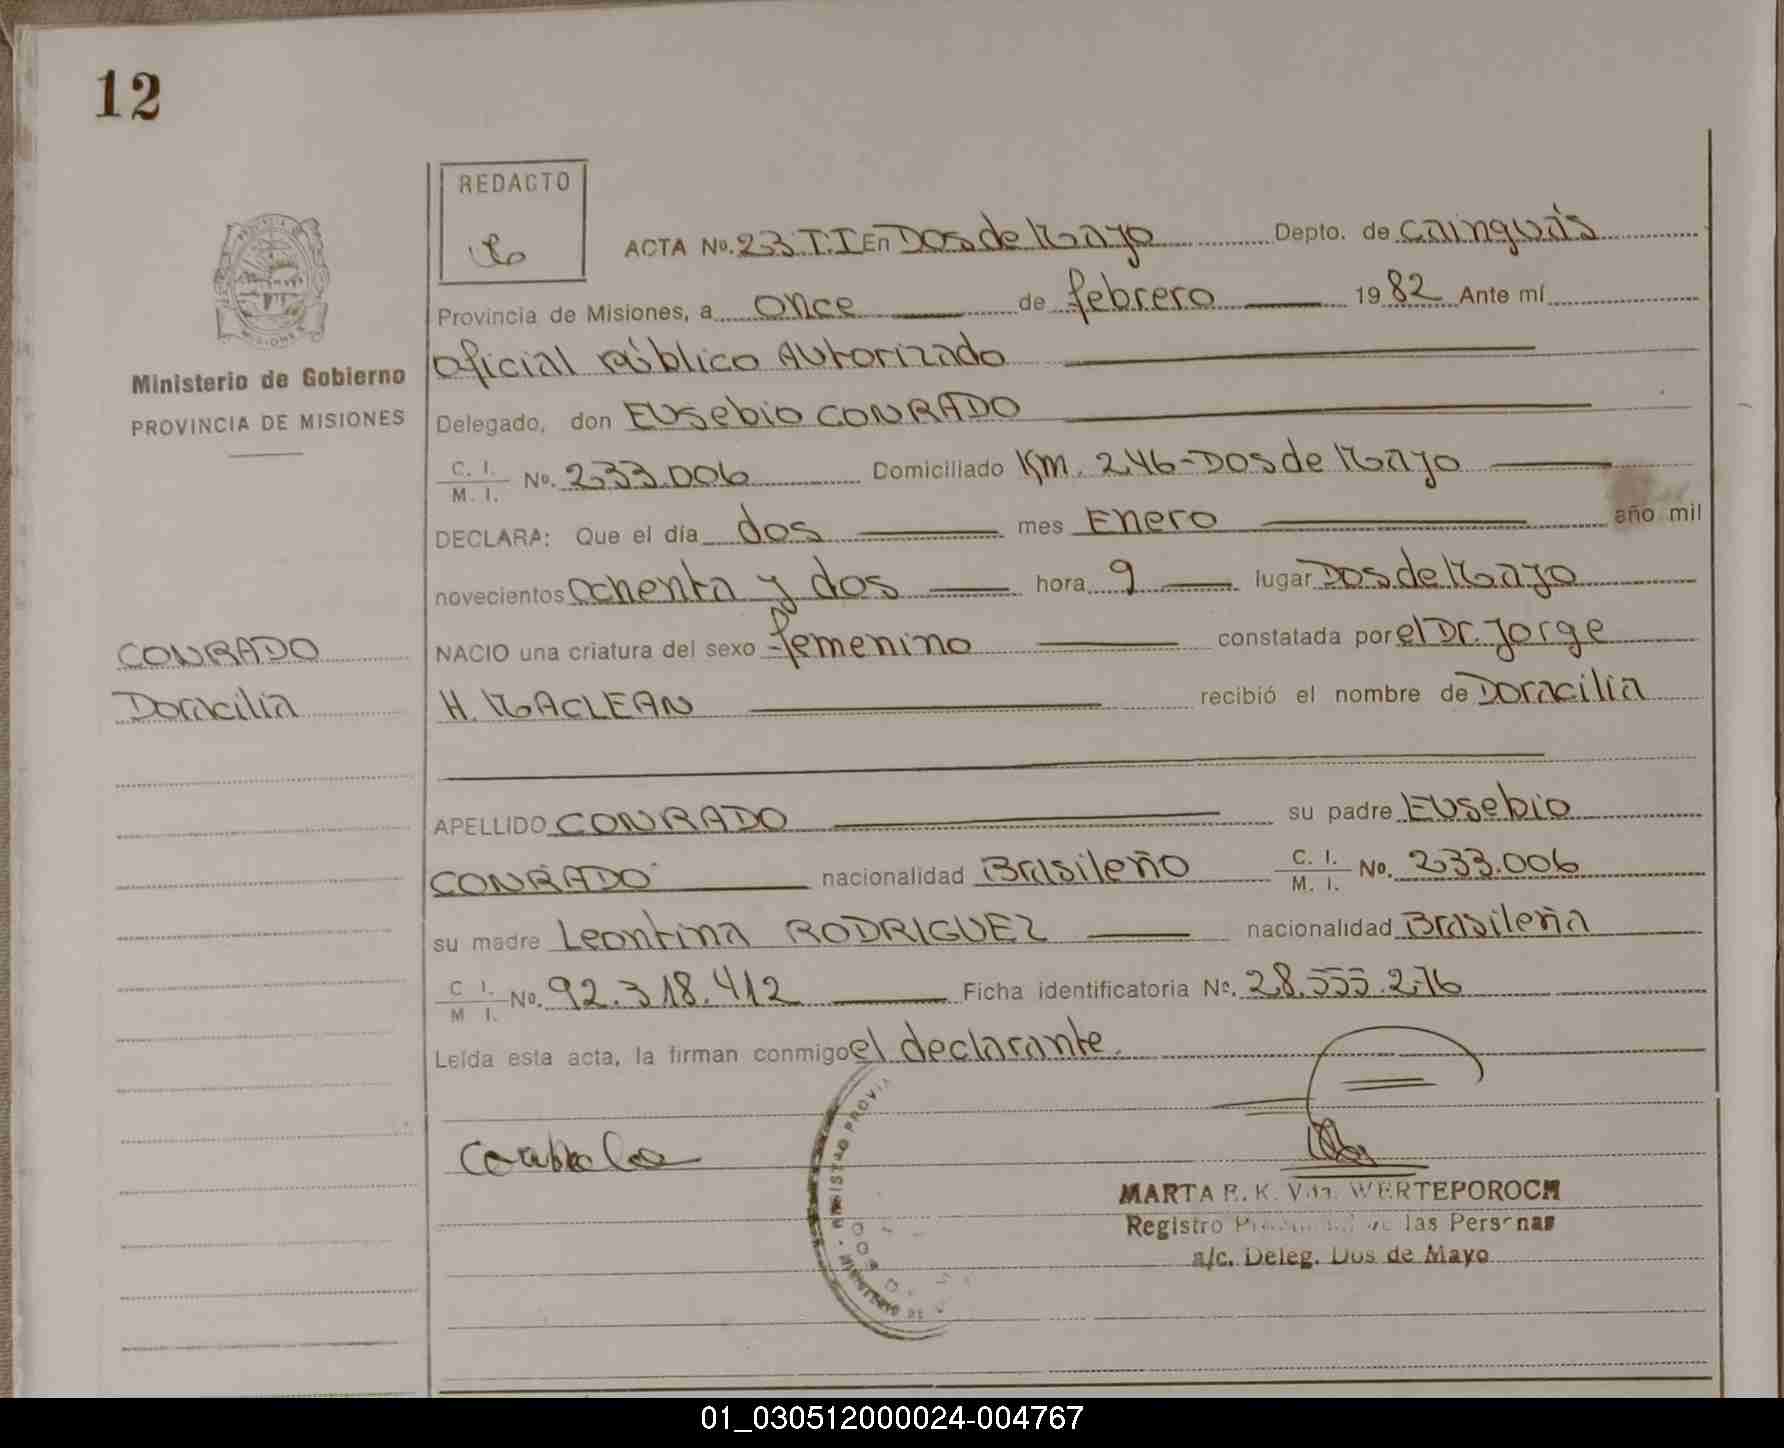 12
REDACTO
ACTA No. 23 T.I En Dos de Mayo Depto. de Cainguás
Provincia de Misiones, a once de febrero 1982 Ante mí
Oficial Público Autorizado
Ministerio de Gobierno
PROVINCIA DE MISIONES
Delegado, don Eusebio CONRADO
C. I.
M. I. No. 233.006 Domiciliado Km. 246-Dos de Mayo
DECLARA: Que el día dos mes Enero año mil
novecientos ochenta y dos hora 9 lugar Dos de Mayo
CONRADO
Doracilia
NACIO una criatura del sexo femenino constatada por el Dr. Jorge
H. MACLEAN recibió el nombre de Doracilia
APELLIDO CONRADO su padre Eusebio
CONRADO nacionalidad Brasileño C. I. M. I. No. 233.006
su madre Leontina RODRIGUEZ nacionalidad Brasileña
C I. M I. No. 92.318.412 Ficha identificatoria No. 28.555.276
Leída esta acta, la firman conmigo el declarante.
MARTA E. K. Vda. WERTEPOROCH
Registro las Personas
a/c. Deleg. Dos de Mayo
01_030512000024-004767